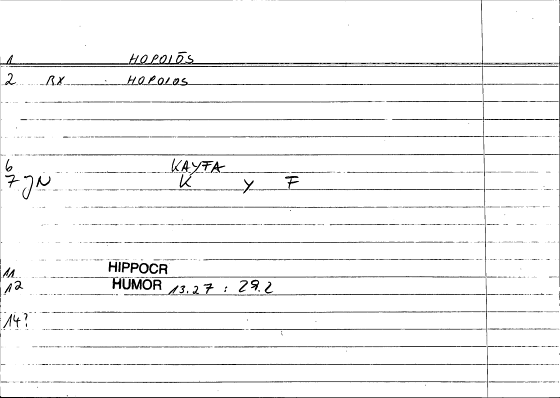 1 HOPOIŌS
2 RX HOPOIOS
6 KAYFA
7 JN K y F
11 HIPPOCR
12 HUMOR 13.27 : 29.2
14?